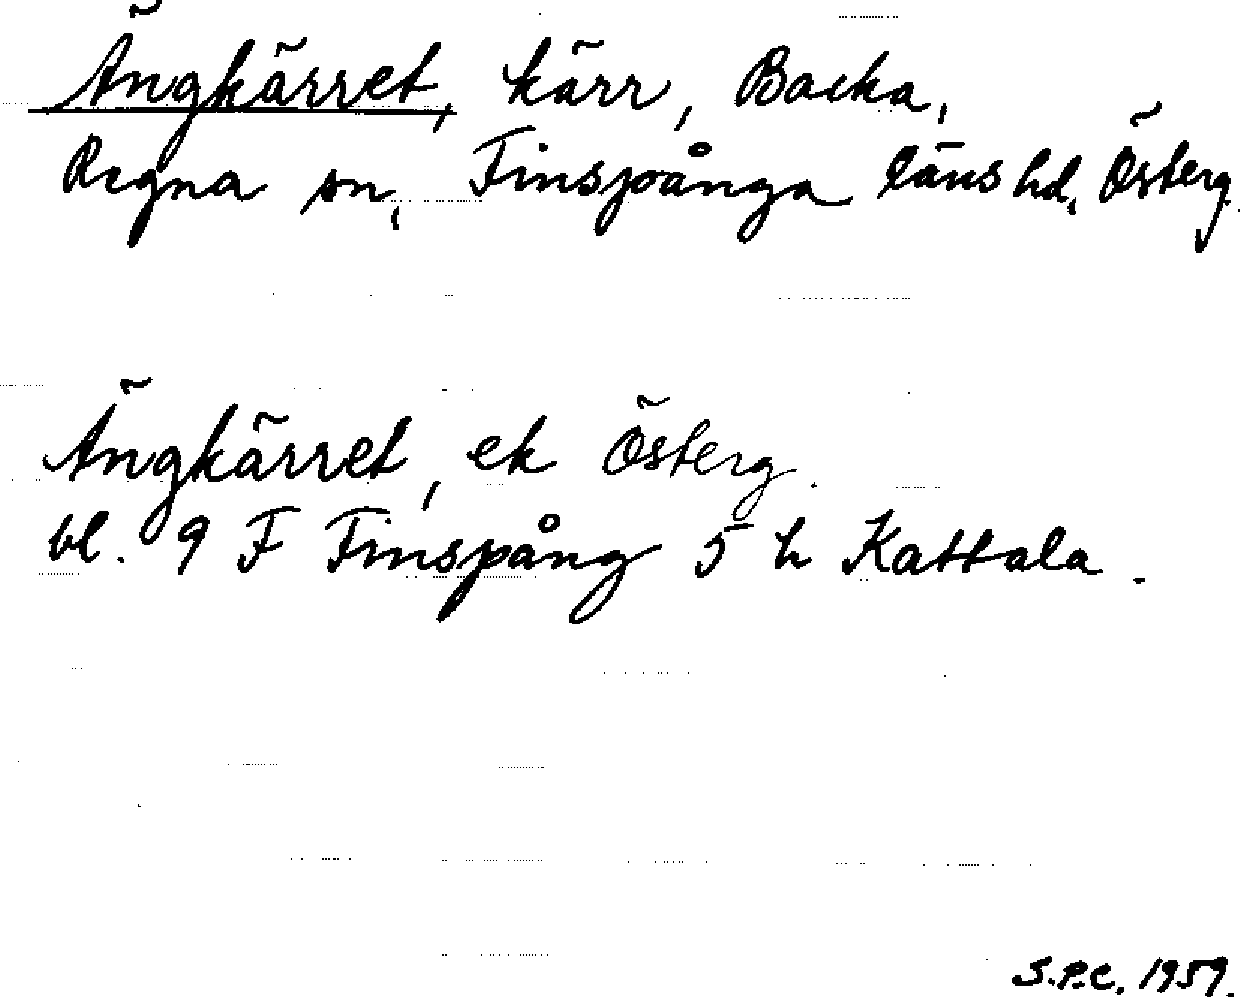 Ängkärret, kärr, Backa,
Regna sn, Finspånga läns hd, Österg.
Ängkärret, ek Österg.
bl. 9 F Finspång 5 h Kattala.
S.P.C. 1959.